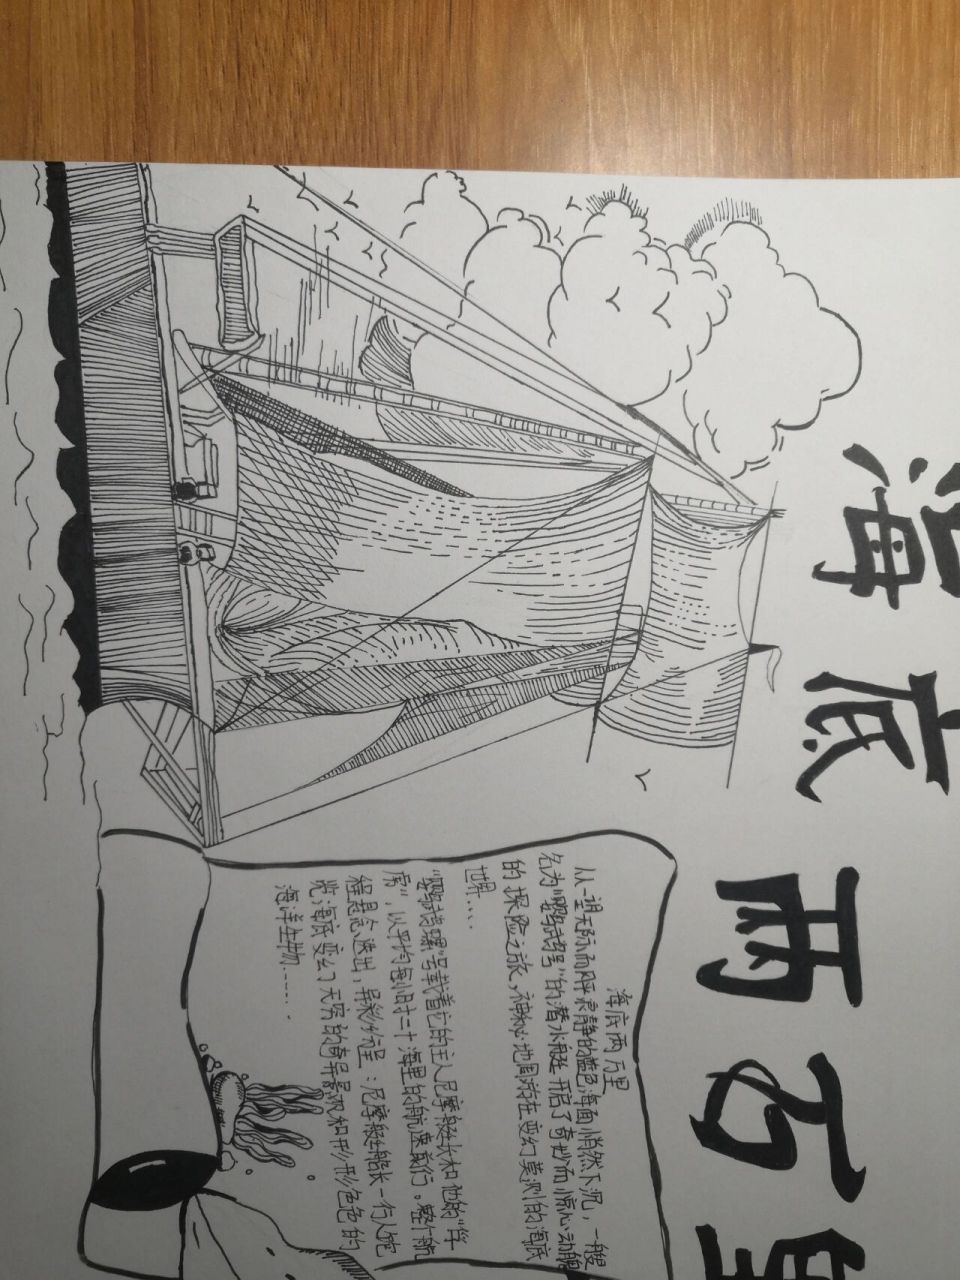 海底两万里
海底两万里
从一望无际而风平浪静的蓝色海面悄然下沉，一艘
名为“鹦鹉螺”的潜水艇开启了奇妙而惊心动魄
的探险之旅，神秘地周游在变幻莫测的海底
世界....
“鹦鹉螺”号载着它的主人尼摩艇长和他的“伴
席”，以平均每小时二十海里的航速疾行。整个航
程悬念迭出，异彩纷呈：尼摩艇船长一行人饱
览海底变幻无穷的奇异景观和形形色色的
海洋生物......